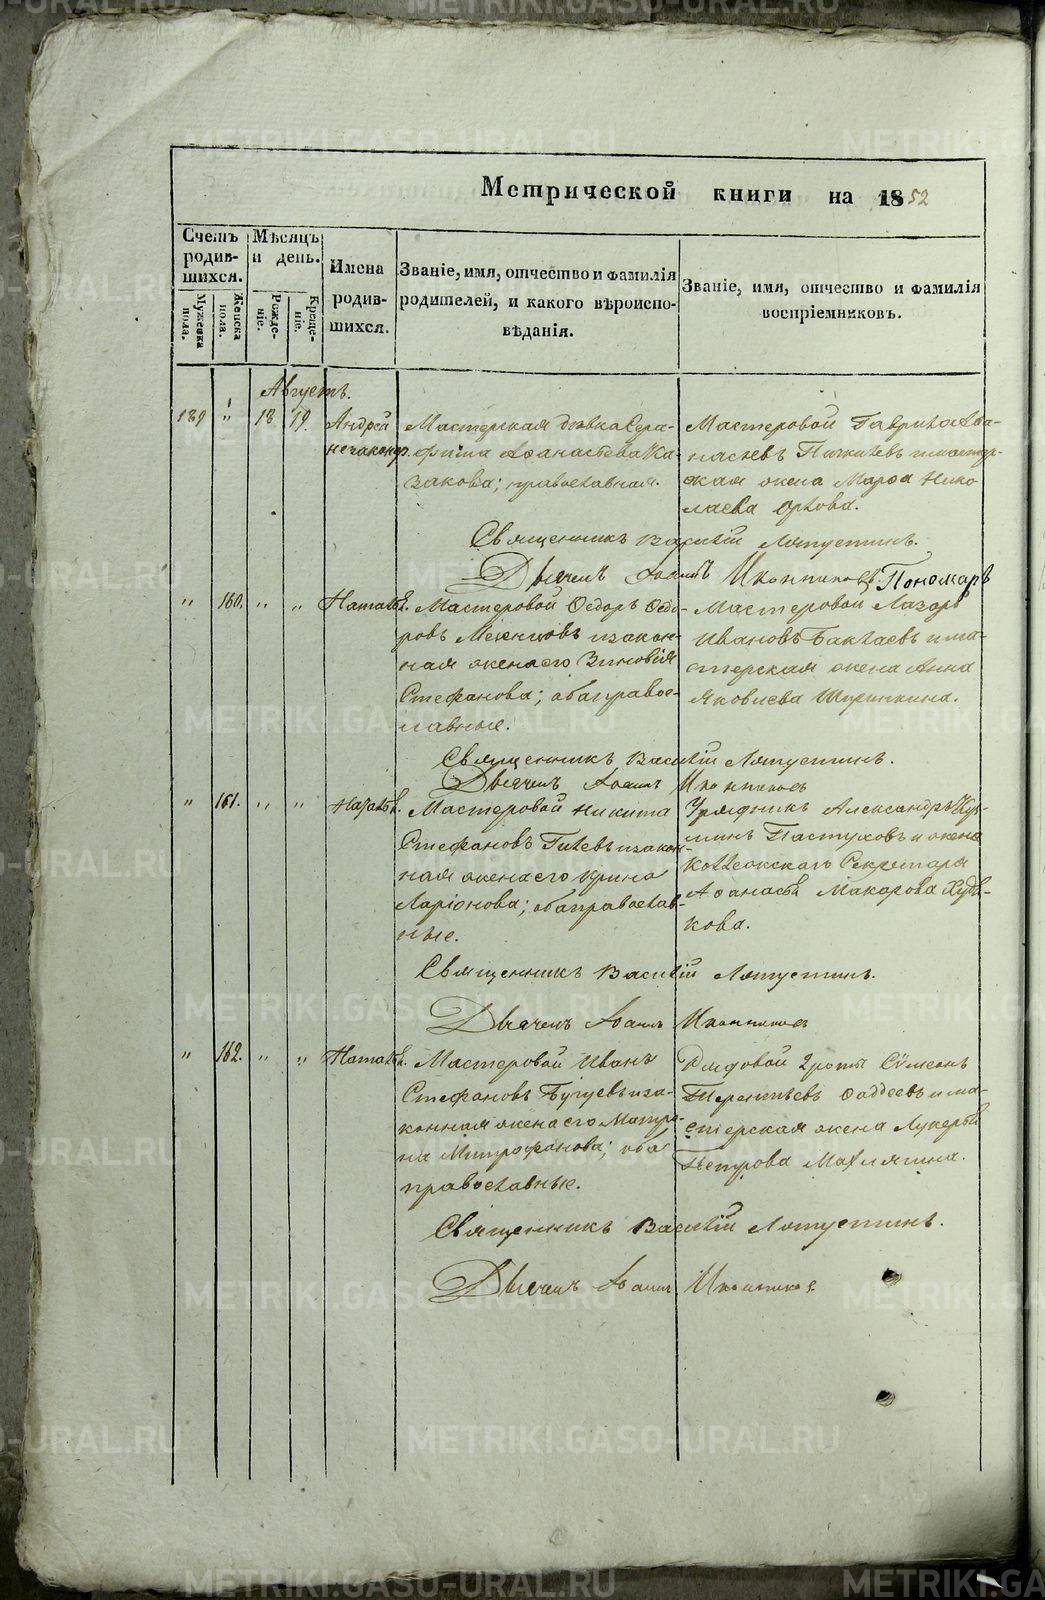 Метрической книги на 1852
Счетъ родив-шихся.
Мужеска пола.
Женска пола.
Мѣсяцъ и день.
Рожде-ніе.
Креще-ніе.
Имена родив-шихся.
Званіе, имя, отчество и фамилія родителей, и какого вѣроиспо-вѣданія.
Званіе, имя, отчество и фамилія воспріемниковъ.
Августъ.
189 " 18 19 Андрей
Мастерская дѣвка Сера-
фима Аѳанасьева Ка-
закова; православная.
Мастеровой Гаврило Аѳа-
насьевъ и мастер-
ская жена Марѳа Нико-
лаева Орлова.
Священникъ Василій
Дьячекъ Іоаннъ Иконниковъ. Пономарь
" 160. " " Наталья.
Мастеровой Ѳедоръ Ѳедо-
ровъ и закон-
ная жена его Зиновія
Стефанова; оба правос-
лавные.
Мастеровой Лазарь
Ивановъ и ма-
стерская жена Анна
Яковлева
Священникъ Василій
Дьячекъ Іоаннъ Иконниковъ
" 161. " " Наталья.
Мастеровой Никита
Стефановъ и закон-
ная жена его Ирина
Ларіонова; оба православ-
ные.
Урядникъ Александръ Кузь-
минъ Пастуховъ и жена
Коллежскаго Секретаря
Аѳанасья Макарова
кова.
Священникъ Василій
Дьячекъ Іоаннъ Иконниковъ
" 162. " " Наталья.
Мастеровой Иванъ
Стефановъ и за-
конная жена его Матро-
на Митрофанова; оба
православные.
Рядовой 2 роты Сѵмеонъ
Терентьевъ Фаддеевъ и ма-
стерская жена Лукерья
Петрова
Священникъ Василій
Дьячекъ Іоаннъ Иконниковъ
METRIKI.GASO-URAL.RU